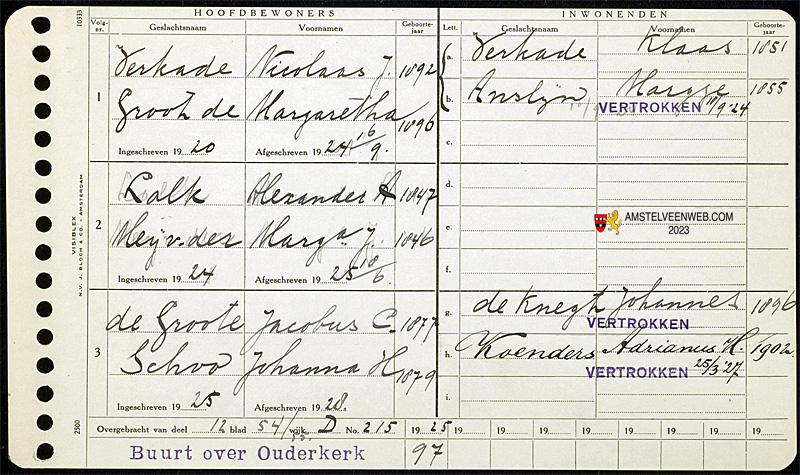 HOOFDBEWONERS
INWONENDEN
10333
Volg-nr.
Geslachtsnaam
Voornamen
Geboorte-jaar
Lett.
Geslachtsnaam
Voornamen
Geboorte-jaar
1
Verkade Nicolaas J. 1892
Groot de Margaretha 1896
Ingeschreven 19 20 Afgeschreven 19 24 16/9.
a. Verkade Klaas 1851
b. Anslijn 1855
VERTROKKEN 9 '24
c.
2
Kalk Alexander 1847
Meij v. der Marga J. 1846
Ingeschreven 19 24 Afgeschreven 19 25 18/6
d.
e.
f.
AMSTELVEENWEB.COM
2023
3
de Groote Jacobus C. 1877
Schoo Johanna H 1879
Ingeschreven 19 25 Afgeschreven 19 28.
g. de Knegt Johannes 1896
VERTROKKEN
h. Koenders Adrianus H. 1902
VERTROKKEN 25/3 '27
i.
VISIBLEX
N.V. J. BLOCH & CO. - AMSTERDAM
2500
Overgebracht van deel 12 blad 54/55. wijk D No. 215 19 25 19 19 19 19 19 19 19 19
Buurt over Ouderkerk 97